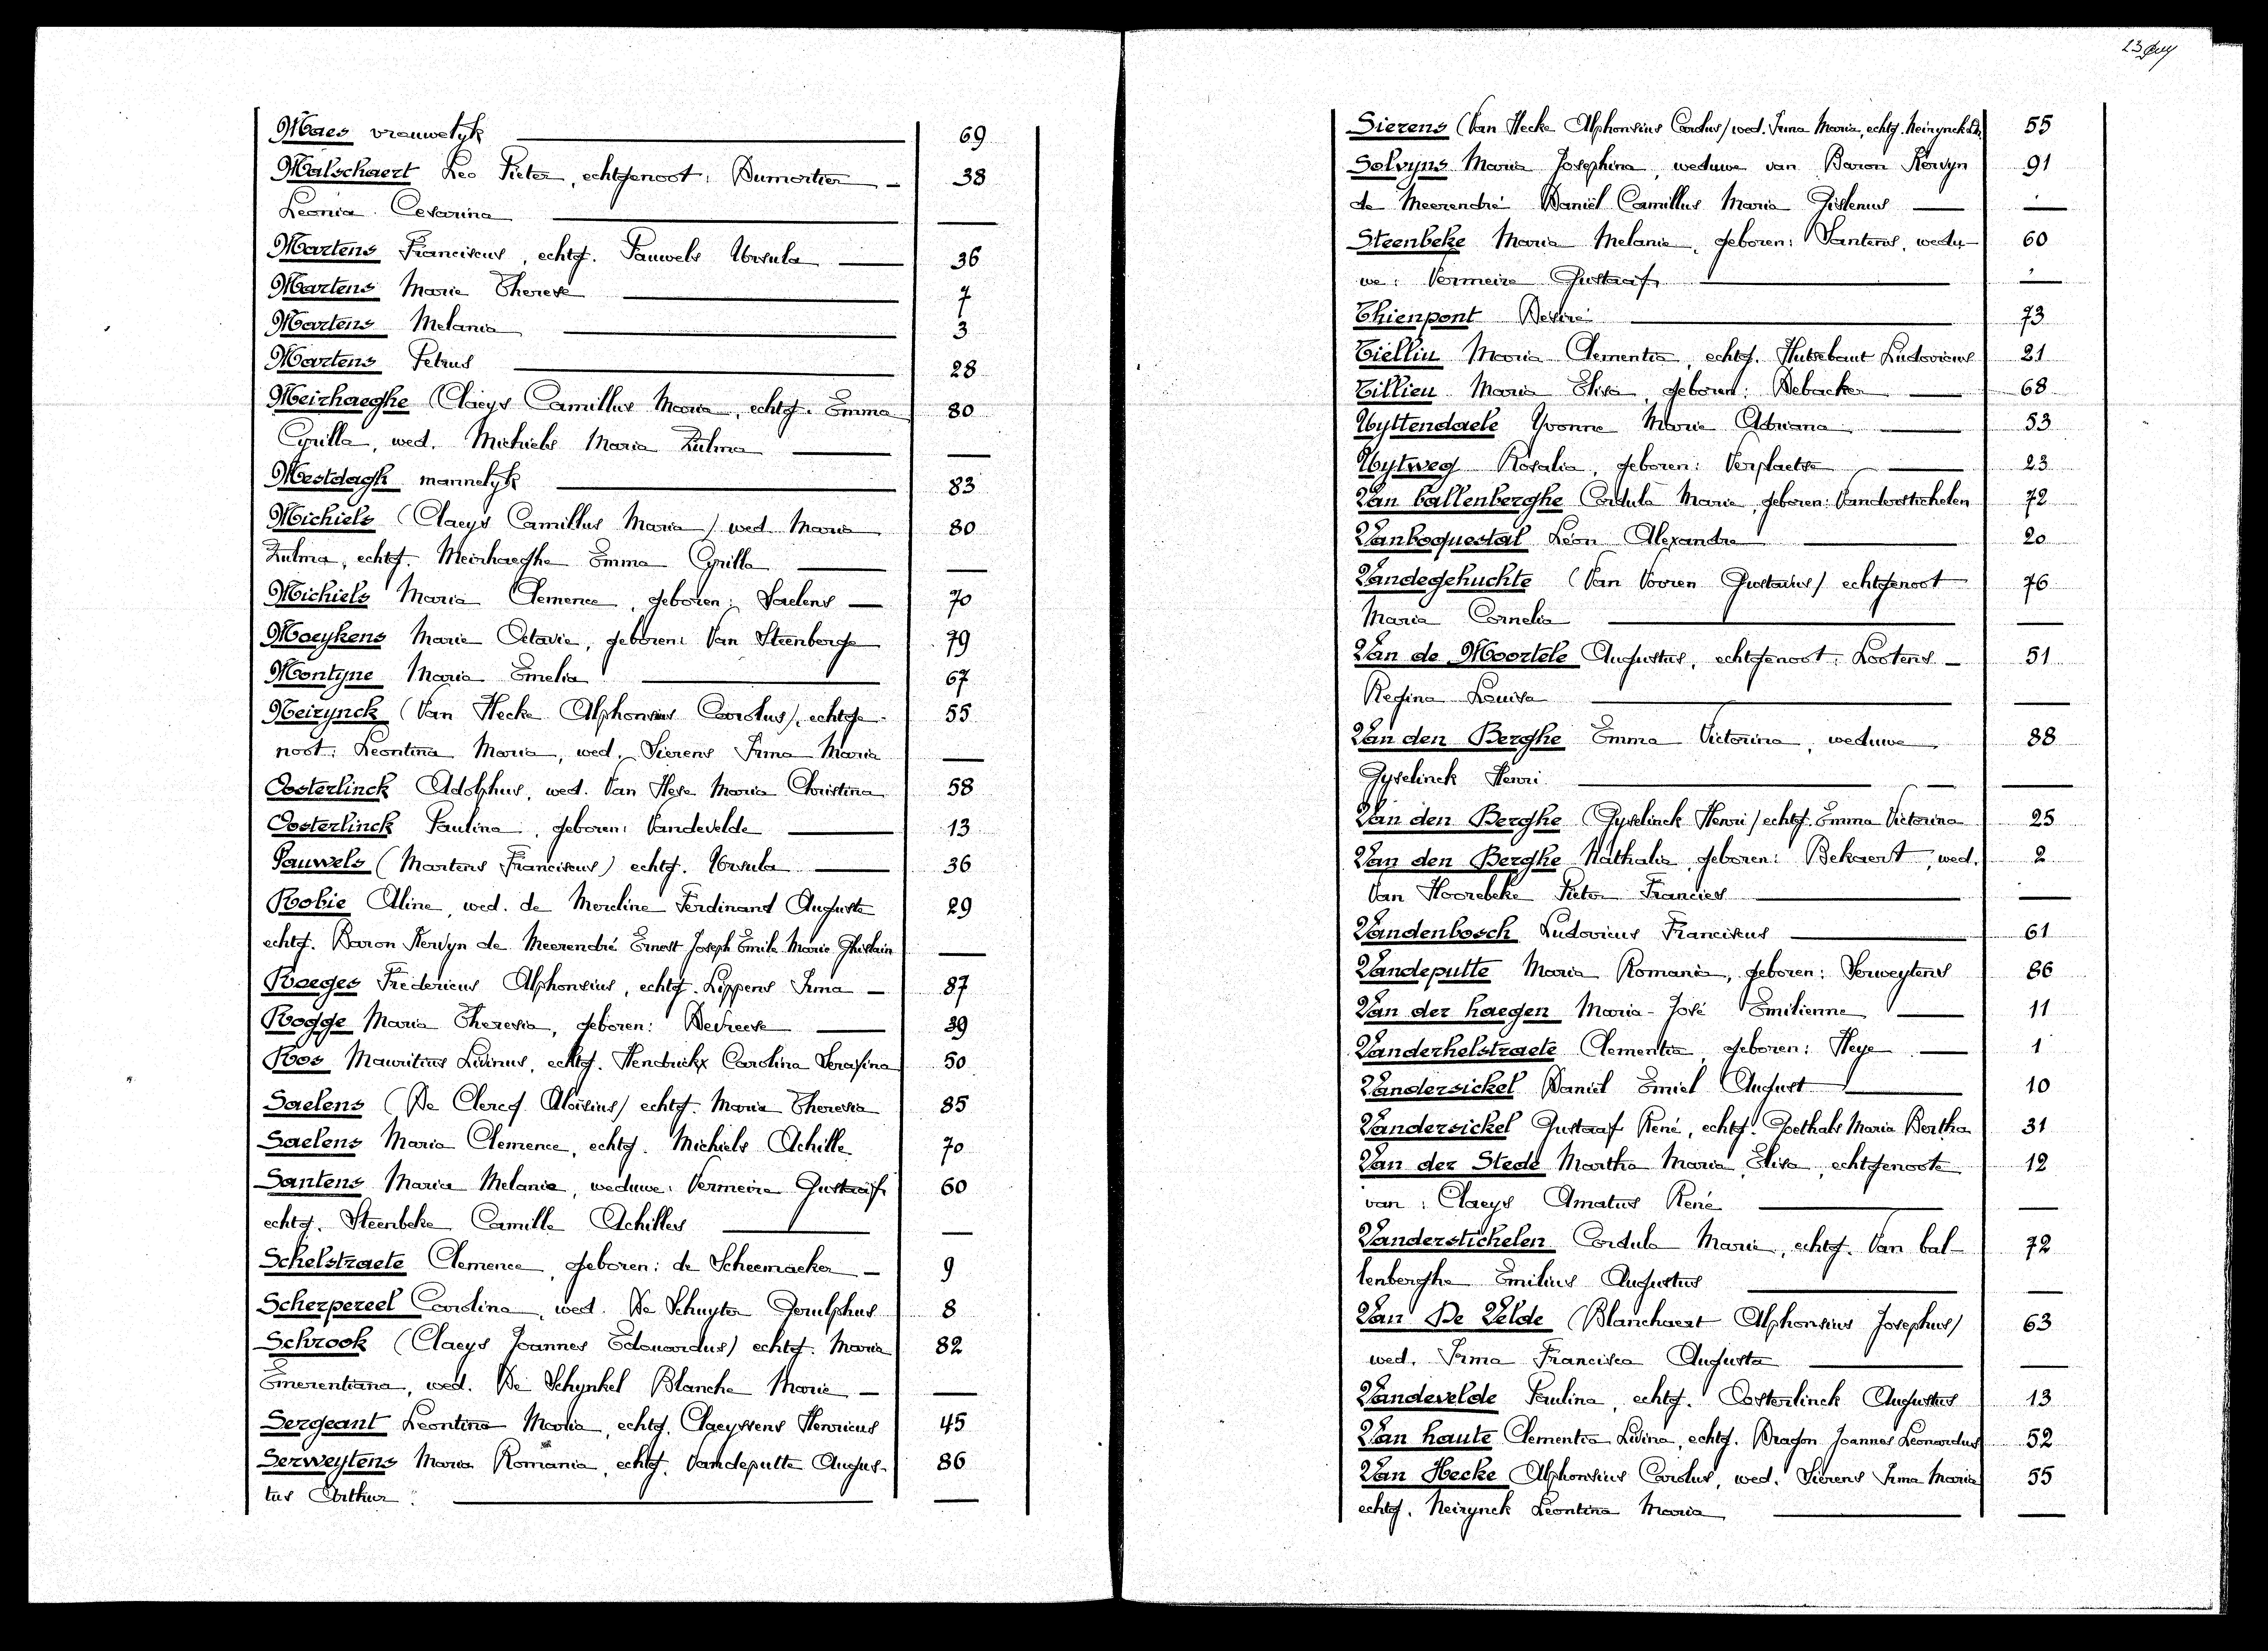 Maes vrouwelyk 69
Malschaert Leo Pieter, echtgenoot: Dumortier 38
Leonia Cesarina
Martens Franciscus, echtg. Pauwels Ursula 36
Martens Marie Therese 7
Martens Melania 3
Martens Petrus 28
Meirhaeghe (Claeys Camillus Maria, echtg. Emma 80
Cyrilla, wed. Michiels Maria Zulma
Mestdagh mannelyk 83
Michiels (Claeys Camillus Maria) wed. Maria 80
Zulma, echtg. Meirhaeghe Emma Cyrilla
Michiels Maria Clemence, geboren: Saelens 70
Moeykens Marie Octavie, geboren: Van Steenberge 79
Montyne Maria Emelia 67
Neirynck (Van Hecke Alphonsius Carolus), echtge- 55
noot: Leontina Maria, wed. Sierens Irma Maria
Oosterlinck Adolphus, wed. Van Hese Maria Christina 58
Oosterlinck Paulina, geboren: Vandevelde 13
Pauwels (Martens Franciscus) echtg. Ursula 36
Robie Aline, wed. de Moreline Ferdinand Auguste 29
echtg. Baron Kervyn de Meerendré Ernest Joseph Emile Marie Ghislain
Roeges Fredericus Alphonsius, echtg. Lippens Irma 87
Rogge Maria Theresia, geboren: Devreese 39
Roos Mauritius Livinus, echtg. Hendrickx Carolina Serafina 50
Saelens (De Clercq Aloïsius) echtg. Maria Theresia 85
Saelens Maria Clemence, echtg. Michiels Achille 70
Santens Maria Melanie, weduwe: Vermeire Gustaaf 60
echtg. Steenbeke Camille Achilles
Schelstraete Clemence, geboren: de Scheemaeker 9
Scherpereel Carolina, wed. De Schuyter Gerulphus 8
Schrook (Claeys Joannes Edouardus) echtg. Maria 82
Emerentiana, wed. De Schynkel Blanche Marie
Sergeant Leontina Maria, echtg. Claeyssens Henricus 45
Serweytens Maria Romania, echtg. Vandeputte Augus- 86
tus Arthur.
Sierens (Van Hecke Alphonsius Carolus) wed. Irma Maria, echtg. Neirynck 55
Solvyns Maria Josephina, weduwe van Baron Kervyn 91
de Meerendré Daniël Camillus Maria Gislenus
Steenbeke Maria Melanie, geboren: Santens, wedu- 60
we: Vermeire Gustaaf
Thienpont Desiré 73
Tiellin Maria Clementia, echtg. Hutsebaut Ludovicus 21
Tillieu Maria Elisa, geboren: Debacker 68
Uyttendaele Yvonne Marie Adriana 53
Uytweg Rosalia, geboren: Verplaetse 23
Van ballenberghe Cordula Marie, geboren: Vanderstichelen 72
Vanboquestal Léon Alexandre 20
Vandegehuchte (Van Vooren Gustavus) echtgenoot 76
Maria Cornelia
Van de Moortele Augustus, echtgenoot: Lootens 51
Regina Louisa
Van den Berghe Emma Victorina, weduwe 88
Gyselinck Henri
Van den Berghe (Gyselinck Henri) echtg. Emma Victorina 25
Van den Berghe Nathalie, geboren: Bekaert, wed. 2
Van Hoorebeke Pieter Francies
Vandenbosch Ludovicus Franciscus 61
Vandeputte Maria Romania, geboren: Serweytens 86
Van der haegen Maria-José Emilienne 11
Vanderhelstraete Clementia, geboren: Heye 1
Vandersickel Daniel Emiel August 10
Vandersickel Gustaaf René, echtg. Goethals Maria Bertha 31
Van der Stede Martha Maria Elisa, echtgenoote 12
van: Claeys Amatus René
Vanderstichelen Cordula Marie, echtg. Van bal- 72
lenberghe Emilius Augustus
Van De Velde (Blanchaert Alphonsius Josephus) 63
wed. Irma Francisca Augusta
Vandevelde Paulina, echtg. Oosterlinck Augustus 13
Van haute Clementia Livina, echtg. Dragon Joannes Leonardus 52
Van Hecke Alphonsius Carolus, wed. Sierens Irma Maria 55
echtg. Neirynck Leontina Maria